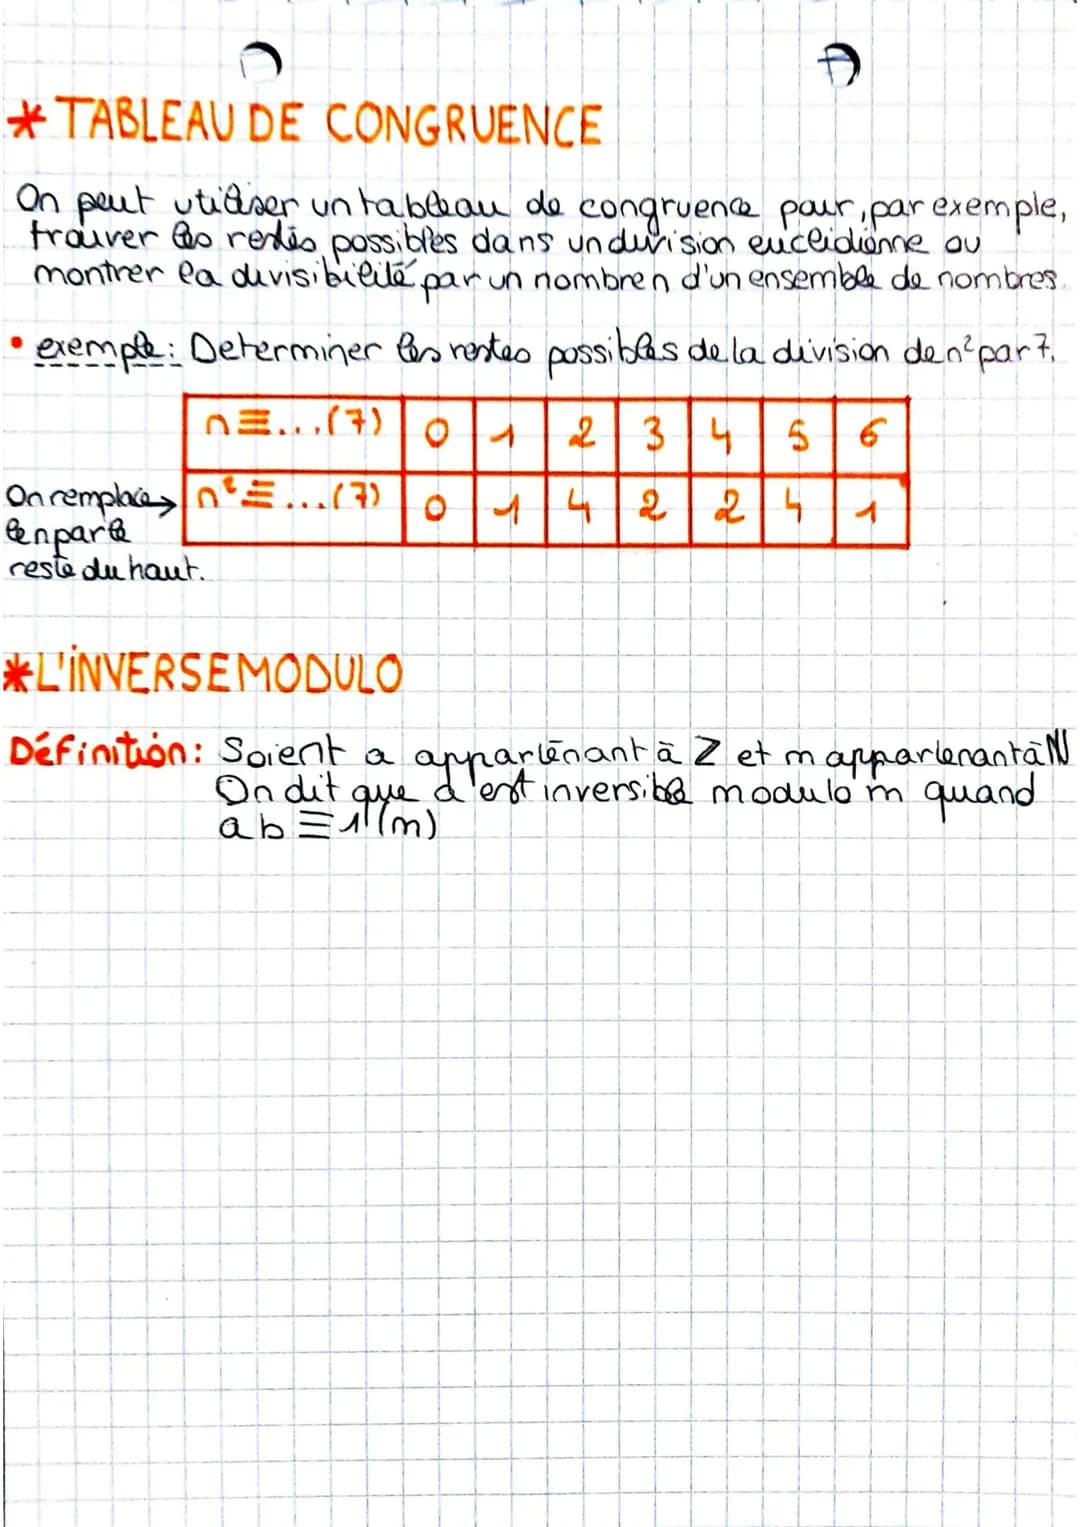 * TABLEAU DE CONGRUENCE
On peut utiliser un tableau de congruence pour, par exemple,
trouver les restes possibles dans un division euclidienne ou
montrer la divisibilité par un nombre n d'un ensemble de nombres.
• exemple: Determiner les restes possibles de la division de n² par 7.
n≡...(7) 0 1 2 3 4 5 6
On remplace → n²≡...(7) 0 1 4 2 2 4 1
le n par le
reste du haut.
* L'INVERSE MODULO
Définition: Soient a appartenant à Z et m appartenant à N
On dit que a est inversible modulo m quand
ab ≡ 1 (m)